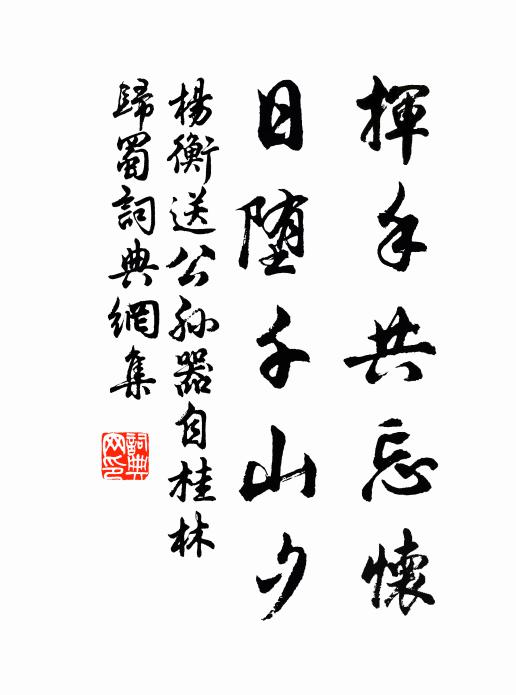 揮手共忘懷
日堕千山夕
楊衡送公孫器自桂林
歸蜀詞典網集
詞典
网印